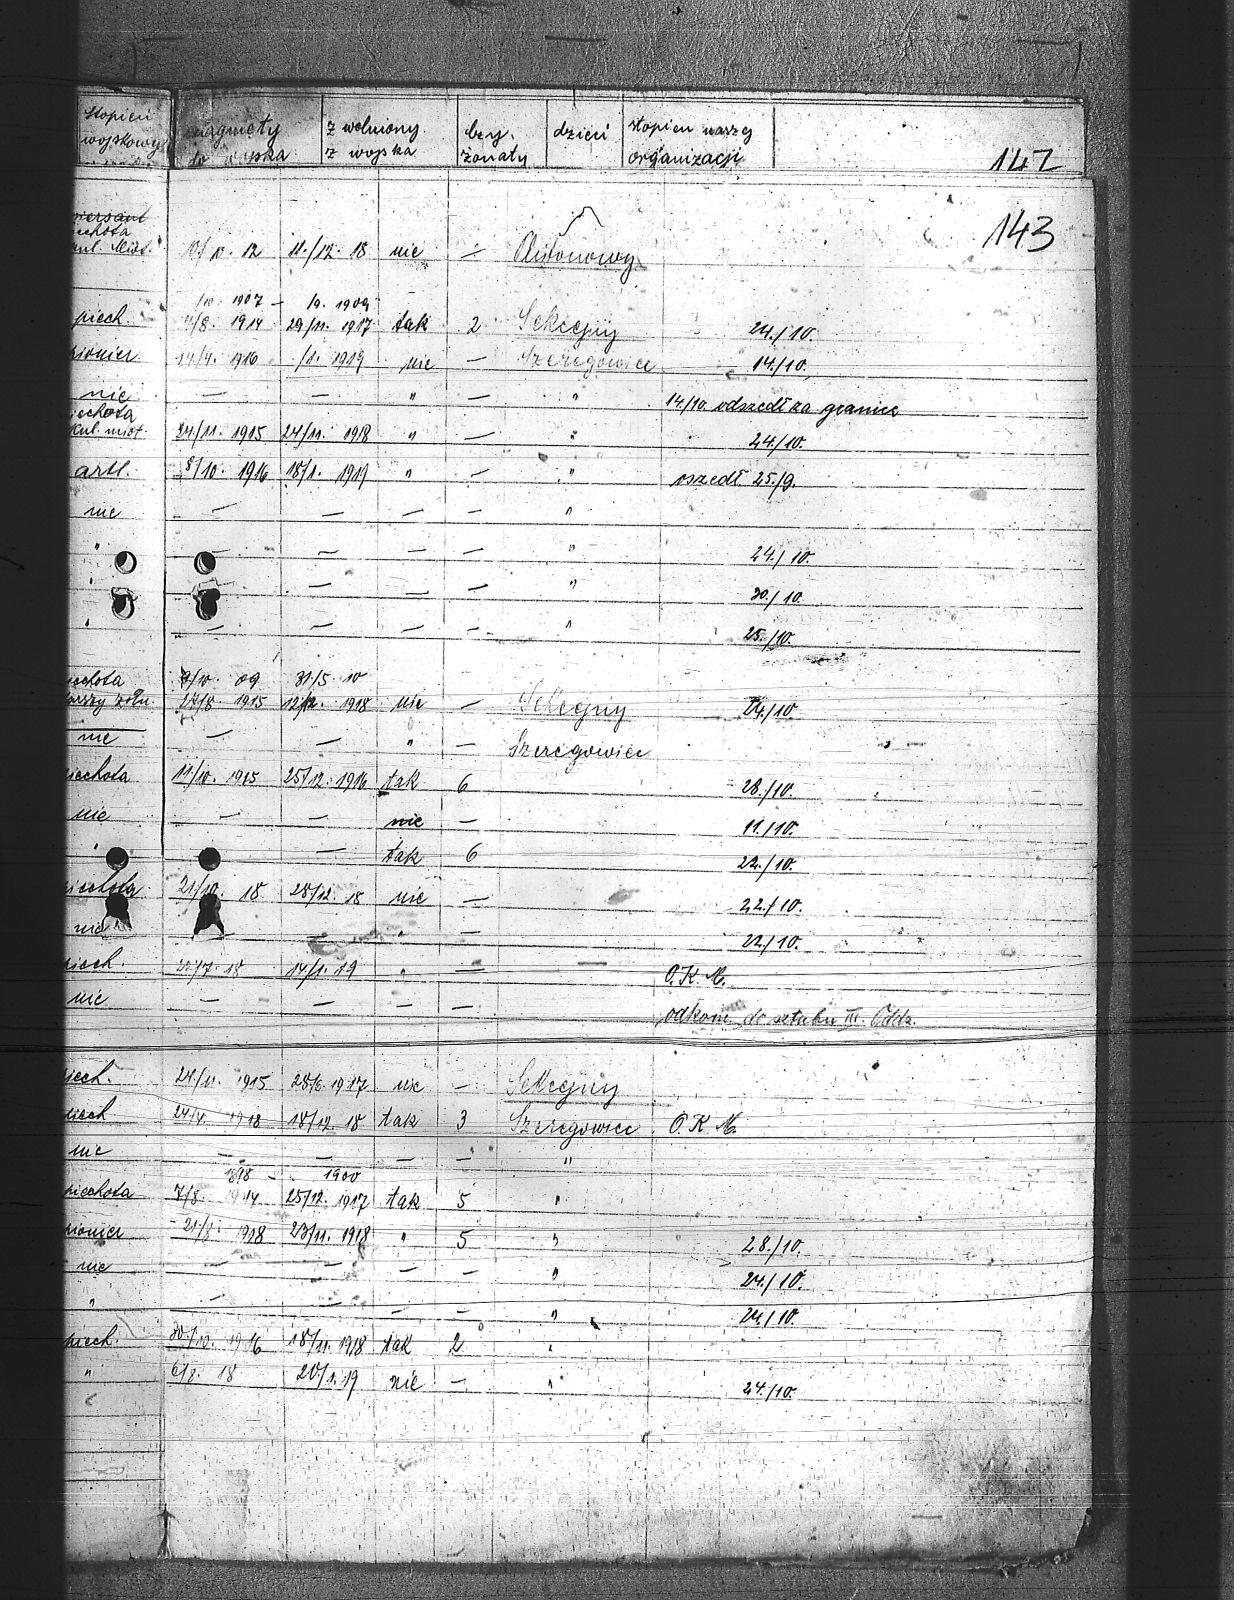 stopień wojskowy | do wojska | zwolniony z wojska | czy żonaty | dzieci | stopień naszej organizacji
147
143
piechota
12 | 11./12. 18 | nie | — | Plutonowy
1907 — /9. 1909
piech. | /8. 1914 | 29/11. 1917 | tak | 2 | Sekcyjny | 24./10.
pionier | 1916 | /1. 1919 | nie | — | Szeregowiec | 14./10.
nie | — | — | " | — | " | 14/10. odszedł za granicę
piechota
24/11. 1915 | 24/11. 1918 | " | — | " | 24./10.
artl. | 8/10. 1916 | 18/1. 1919 | " | — | " | oszedł 25./9.
nie | — | — | — | — | "
" | — | — | — | — | " | 24./10.
" | — | — | — | " | 30./10.
" | — | — | — | — | " | 25./10.
piechota | /10. 09 | 31/5 10
24/8. 1915 | 12/12. 1918 | nie | — | Sekcyjny | 24./10
nie | — | — | " | — | Szeregowiec
piechota | 11/10. 1915 | 25/12. 1916 | tak | 6 | 28./10.
nie | — | — | nie | — | 11./10.
" | — | tak | 6 | 22./10.
piechota | 21/10. 18 | 28/12. 18 | nie | — | 22./10.
nie | — | " | — | 22./10.
piech. | 20/7. 18 | 14/1. 19 | " | — | O.K.M.
nie | — | — | — | — | odkom. do sztabu III. Oddz.
piech. | 24/11. 1915 | 28/6. 1917 | nie | — | Sekcyjny
piech | 24/4. 1918 | 18/12. 18 | tak | 3 | Szeregowiec | O.K.M.
nie | — | — | — | — | "
1898 — 1900
piechota | 7/8. 1914 | 25/12. 1917 | tak | 5 | "
pionier | 21/8. 1918 | 23/11. 1918 | " | 5 | " | 28./10.
nie | — | — | — | — | " | 24./10.
" | — | — | — | " | 24./10.
piech. | 30/10. 1916 | 18/11. 1918 | tak | 2 | "
" | 6/8. 18 | 20/1. 19 | nie | — | " | 24./10.